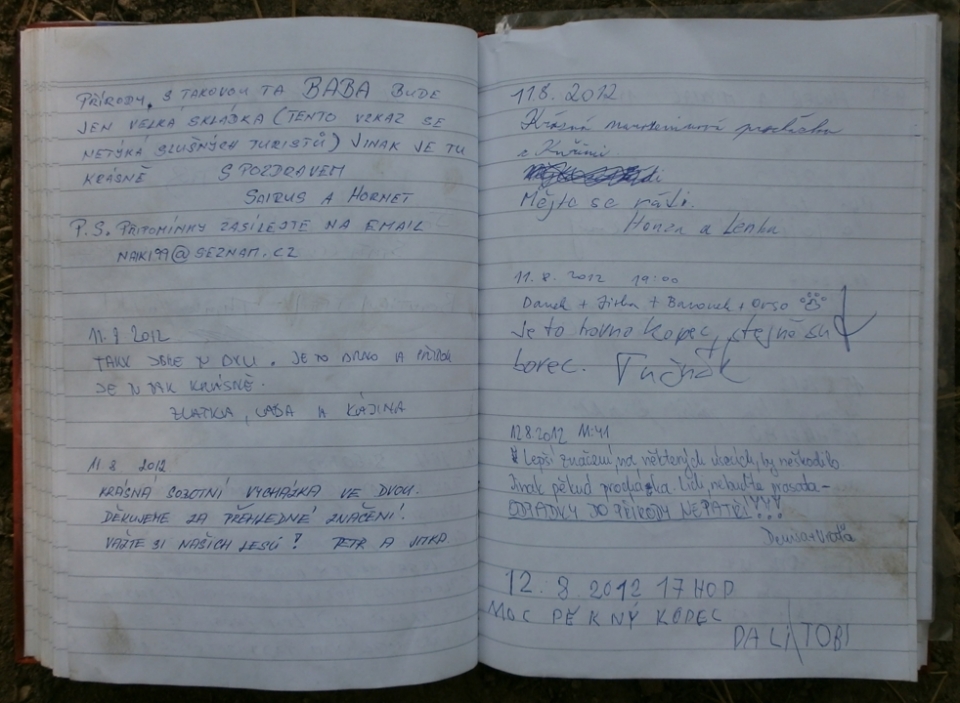 PŘÍRODY, S TAKOVOU TA BABA BUDE
JEN VELKÁ SKLÁDKA (TENTO VZKAZ SE
NETÝKÁ SLUŠNÝCH TURISTŮ) JINAK JE TU
KRÁSNĚ S POZDRAVEM
SAIRUS A HORNET
P.S. PŘIPOMÍNKY ZASÍLEJTE NA EMAIL
NAIK199@SEZNAM.CZ
11.8 2012
JE TO
JE KRÁSNĚ.
ZLATKA, A KÁJINA
11.8 2012
KRÁSNÁ SOBOTNÍ VYCHÁZKA VE DVOU.
DĚKUJEME ZA PŘEHLEDNÉ ZNAČENÍ!
VAŽTE SI NAŠICH LESŮ! PETR A JITKA
11.8. 2012
Krásná narozeninová procházka
z Kuřimi.
Mějte se rádi.
Honza a Lenka
11.8. 2012 19:00
Danek + Jirka + + Orso
Je to hovno kopec, stejně su
borec. Tučňák
12.8.2012 11:41
Lepší značení na některých úsecích, by neškodilo
Jinak pěkná procházka. Lidi, nebuďte prasata -
ODPADKY DO PŘÍRODY NEPATŘÍ!!!
Denisa+
12.8 2012 17 HOD
MOC PĚKNÝ KOPEC
TOBI